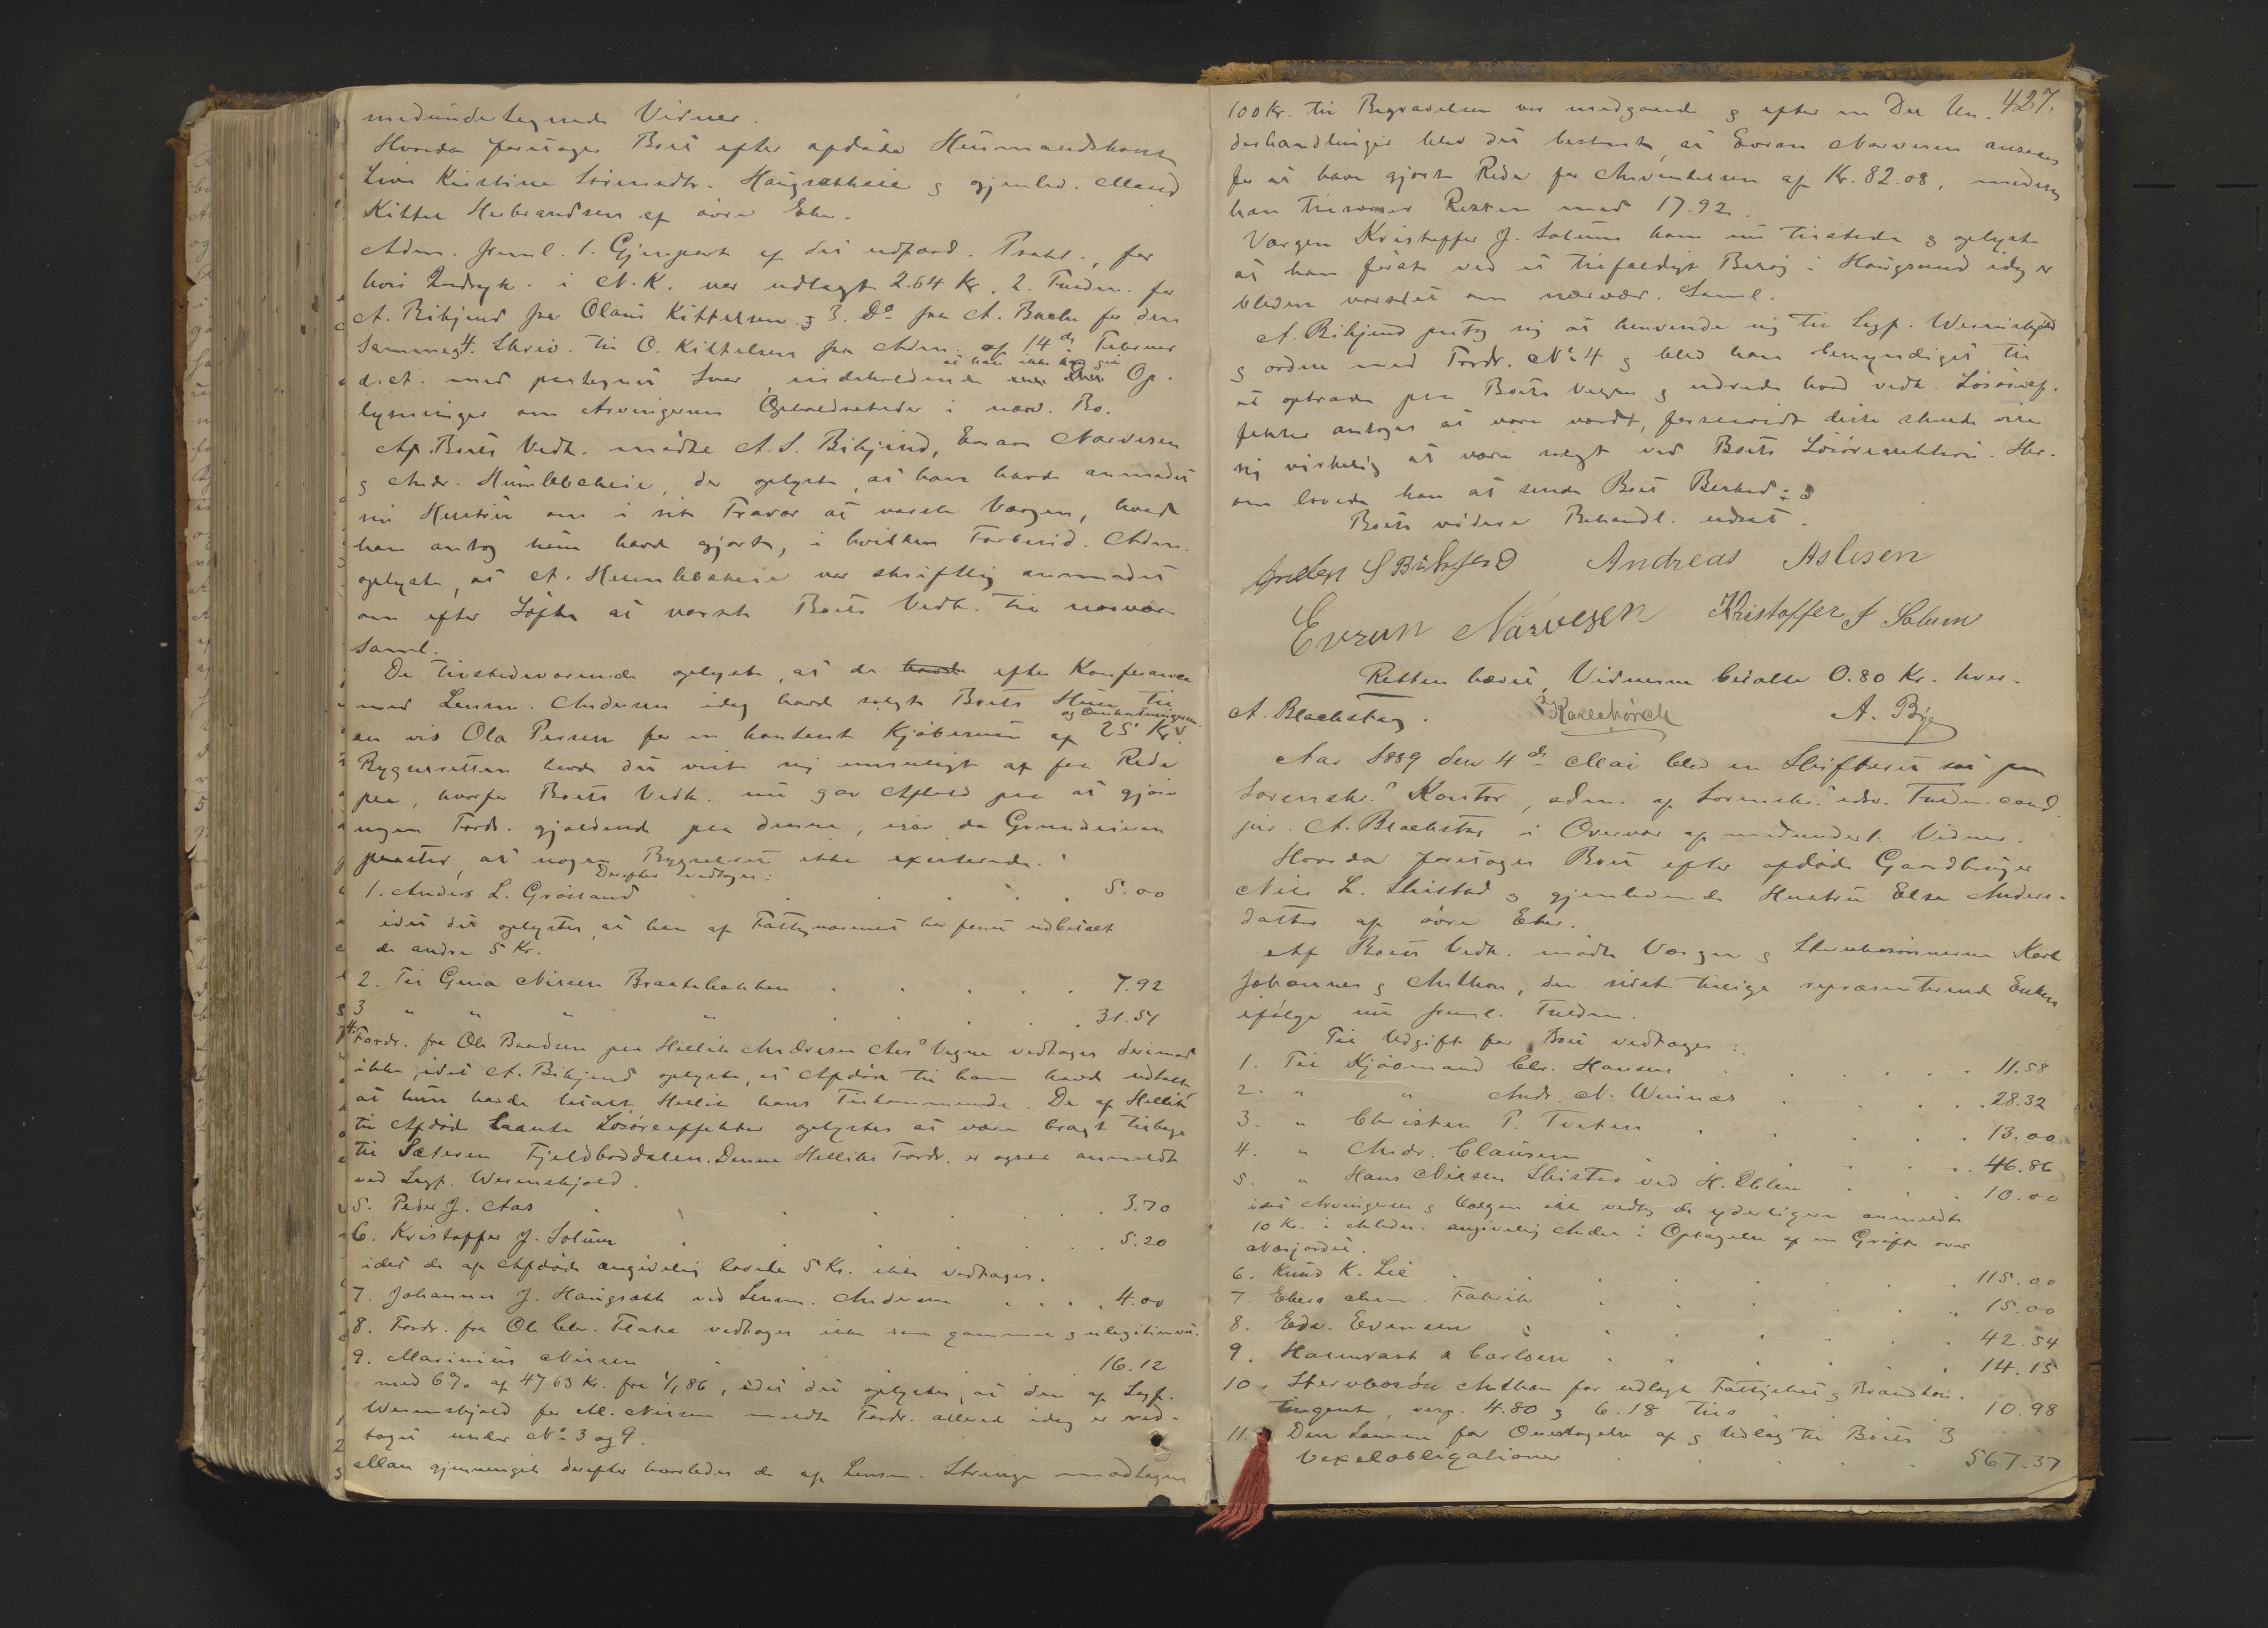 medundertegnede Vidner.
Hvorda foretoges Boet efter afdøde Husmandskone
Live Kirstine Sørensdtr. Haugsætheie og gjenlev. Mand
Kittel Herbrandsen af øvre Eker.
Adm. freml. 1. Gjenpart af det udfærd. Prokl., for
hvis Indryk. i N. K. var udlagt 2.64 Kr. 2. Fuldm. for
A. Bikjend fra Olaus Kittelsen og 3. Do fra A. Bache for den
Samme, 4. Skriv. til O. Kittelsen fra Adm. af 14de Februar
d. A. med paategnet Svar, indeholdende at han ikke kan give Op-
lysninger om Arvingernes Opholdssteder i nærv. Bo.
Af Boets Vedk. mødte A. S. Bikjend, Evran Narvesen
og Andr. Humlebekeie, der oplyste, at han havde anmodet
sin Hustru om i sit Fravær at varsle Værgen, hvad
han antog hun havde gjort, i hvilken Forbind. Adm.
oplyste, at A. Humlebekeie var skriftlig anmodet
om efter Løfte at varsle Boets Vedk. til nærvær.
Saml.
De tilstedeværende oplyste, at de havde efter Konferance
med Lensm. Andersen idag havde solgt Boets Hus til
og Omkostningerne
en vis Ola Persen for en kontant Kjøbesum af 25 Kr.
Bygselretten havde det vist sig umuligt at faa Rede
paa, hvorfor Boets Vedk. nu gav Afkald paa at gjøre
nogen Fordr. gjældende paa denne, især da Grundeieren
paastod, at nogen Bygselret ikke existerede.
Derefter vedtoges:
1. Anders L. Grøsland . . . 5.00
idet det oplystes, at han af Fattigvæsenet har faaet udbetalt
de andre 5 Kr.
2. Til Gina Nilsen Braatebakken . . . 7.92
3 " " " " . . . 31.51
4. Fordr. fra Ole Baardsen paa Hellik Andersen Aas' Vegne vedtoges derimod
ikke, idet A. Bikjend oplyste, at Afdøde til ham havde udtalt,
at hun havde betalt Hellik hans Tilkommende. De af Hellik
til Afdøde laante Løsøreeffekter oplystes at være bragt tilbage
til Sæteren Fjeldboddalen. Denne Helliks Fordr. er ogsaa anmeldt
ved Sagf. Wesenskjold.
5. Peder J. Aas . . . 3.70
6. Kristoffer J. Solum . . . 5.20
idet de af Afdøde angivelig lovede 5 Kr. ikke vedtages.
7. Johannes J. Haugsæth ved Lensm. Andersen . . . 4.00
8. Fordr. fra Ole Chr. Flata vedtoges ikke som gammel og ulegitimeret.
9. Marinius Nilsen . . . 16.12
med 6% af 47.63 Kr. fra 1/1 86, idet det oplystes, at den af Sagf.
Wesenskjold for M. Nilsen meldte Fordr. allerede idag er ved-
taget under No 3 og 9.
gjennemgik derefter de af Lensm. Strenge modtagne
427.
100 Kr. til Begravelsen var medgaaet og efter en Del Un-
derhandlinger blev det bestemt, at Evran Narvesen ansees
for at have gjort Rede for Anvendelsen af Kr. 82.08, medens
han tilsvarer Resten med 17.92.
Værgen Kristoffer J. Solum kom nu tilstede og oplyste
at han først ved et tilfældigt Besøg i Haugsund idag er
bleven varslet om nærvær. Saml.
A. Bikjend paatog sig at henvende sig til Sagf. Wesenskjold
og ordne med Fordr. No 4 og blev han bemyndiget til
at optræde paa Boets Vegne og udrede hvad vedk. Løsøreef-
fekter antoges at være værdt, forsaavidt disse skulde vise
sig virkelig at være solgt ved Boets Løsøreauktion. Her-
om lovede han at sende Boet Besked.
Boets videre Behandl. udsat.
Anders S Bikjend Andreas Aslesen
Evran Narvesen Kristoffer J Solum
Retten hævet, Vidnerne betalte 0.80 Kr. hver.
A. Blackstag. Karechörck A. Bye
Aar 1889 den 4de Mai blev en Skifteret sat paa
Sorenskr.s Kontor, adm. af Sorenskr.s edsv. Fuldm. cand.
jur. A. Blackstag i Overvær af medundert. Vidner.
Hvorda foretoges Boet efter afdøde Gaardbruger
Nils H. Skistad og gjenlevende Hustru Else Anders-
datter af øvre Eker.
Af Boets Vedk. mødte Værgen og Stervbosønnerne Karl
Johannes og Anthon, den sidste tillige repræsenterende Enken
ifølge nu freml. Fuldm.
Til Udgift for Boet vedtoges:
1. Til Kjøbmand Chr. Hansen . . . 11.58
2. " " Andr. N. Wiinæs . . . 28.32
3. " Christen P. Tveten . . . 13.00
4. " Andr. Clausen . . . 46.86
5. " Hans Nilsen Skistad ved H. Ehlen . . . 10.00
idet Arvingerne og Værgen ikke vedtog de yderligere anmeldte
10 Kr. i Anledn. angivelig Andel i Optagelse af en Grøft over
Næsjordet.
6. Knud K. Lie . . . 115.00
7. Ekers chem. Fabrik . . . 15.00
8. Edv. Evensen . . . 42.54
9. Halmrast & Carlsen . . . 14.15
10. Stervbosøn Anthon for udlagt Fattigskat og Brandkon-
tingent, resp. 4.80 og 6.18 tils. . . . 10.98
11. Den Samme for Overtagelse af og Udlæg til Boets 3
Vexelobligationer . . . 567.37